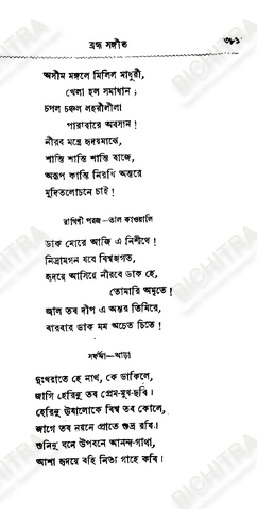 ব্রহ্ম সঙ্গীত
অসীম মঙ্গলে মিলিল মাধুরী,
খেলা হল সমাধান;
চপল চঞ্চল লহরীলীলা
পারাবারে অবসান!
নীরব মন্ত্রে হৃদয়মাঝে,
শান্তি শান্তি শান্তি বাজে,
অরূপ কান্তি নিরখি অন্তরে
মুদিতলোচনে চাই!
রাগিণী পরজ—তাল কাওয়ালি
ডাক মোরে আজি এ নিশীথে!
নিদ্রামগন যবে বিশ্বজগত,
হৃদয়ে আসিয়ে নীরবে ডাক হে,
তোমারি অমৃতে!
জ্বাল তব দীপ এ অন্তর তিমিরে,
বারবার ডাক মম অচেত চিতে!
দুঃখরাতে হে নাথ, কে ডাকিলে,
জাগি হেরিনু তব প্রেম-মুখ-ছবি।
হেরিনু ঊষালোকে বিশ্ব তব কোলে,
জাগে তব নয়নে প্রাতে শুভ্র রবি।
শুনিনু বনে উপবনে আনন্দ-গাথা,
আশা হৃদয়ে বহি নিত্য গাহে কবি।
BIGHITRA